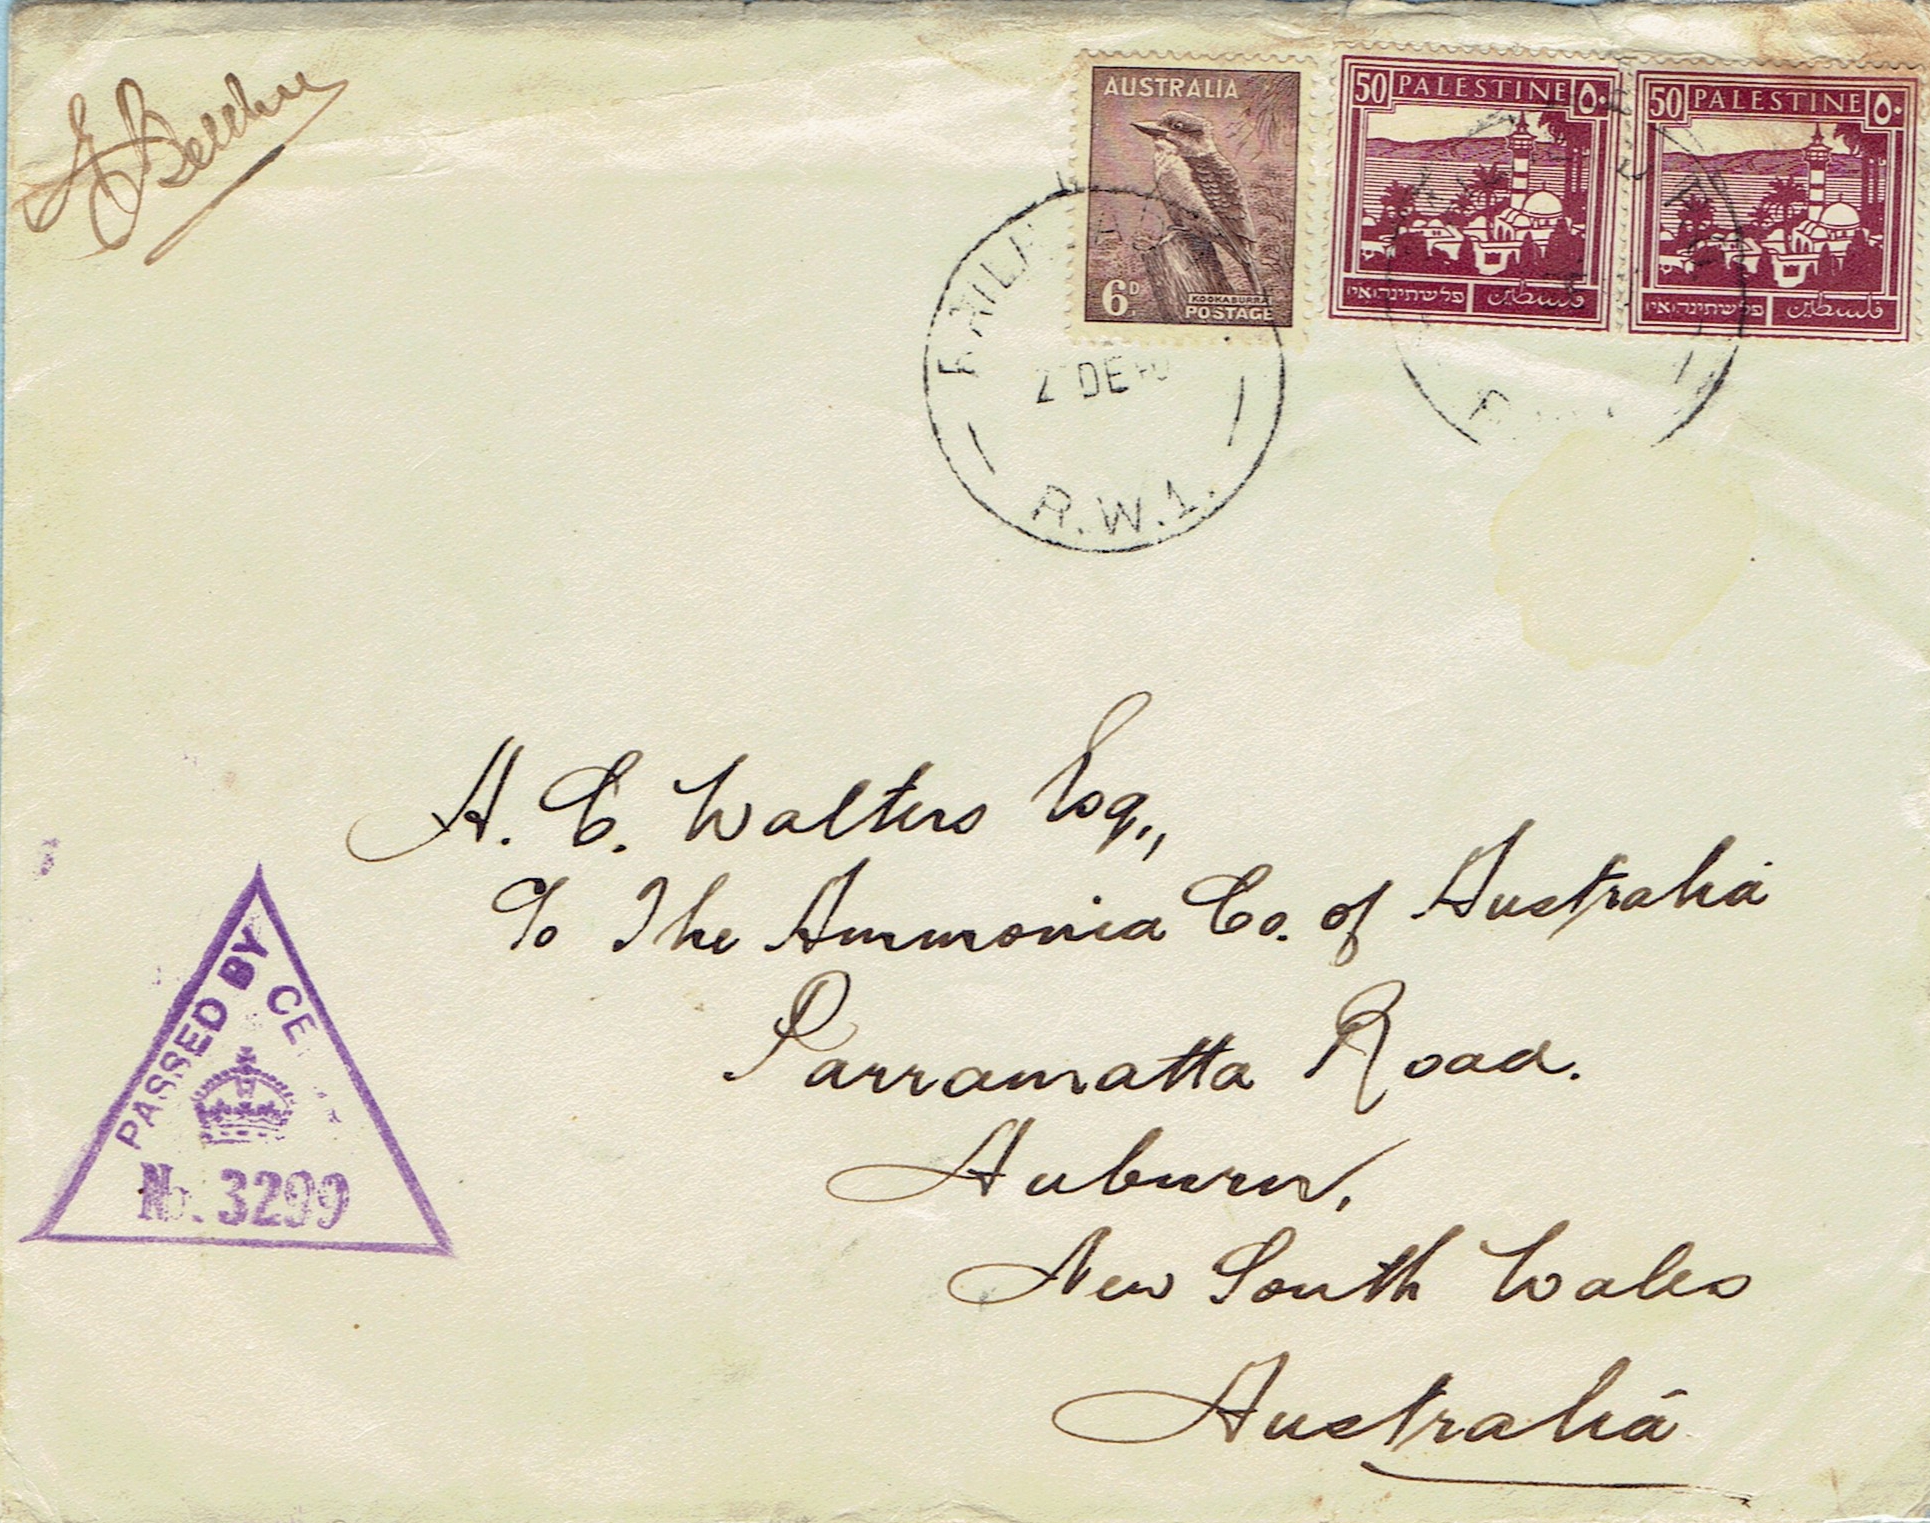 AUSTRALIA
6D
KOOKABURRA
POSTAGE
50 PALESTINE ٥٠
פלשתינה א״י فلسطين
50 PALESTINE ٥٠
פלשתינה א״י فلسطين
2 DE 40
R.W.1.
H. C. Walters Esq.,
C/o The Ammonia Co. of Australia
Parramatta Road.
Auburn,
New South Wales
Australia
PASSED BY CE
No. 3299